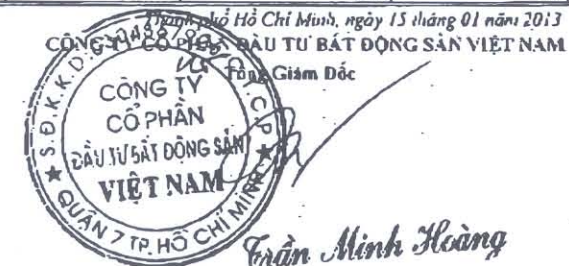 Thành phố Hồ Chí Minh, ngày 15 tháng 01 năm 2013
CÔNG TY CỔ PHẦN ĐẦU TƯ BẤT ĐỘNG SẢN VIỆT NAM
Tổng Giám Đốc
S.Đ.K.K.D: C.T.C.P
CÔNG TY
CỔ PHẦN
ĐẦU TƯ BẤT ĐỘNG SẢN
VIỆT NAM
QUẬN 7 TP. HỒ CHÍ MINH
Trần Minh Hoàng